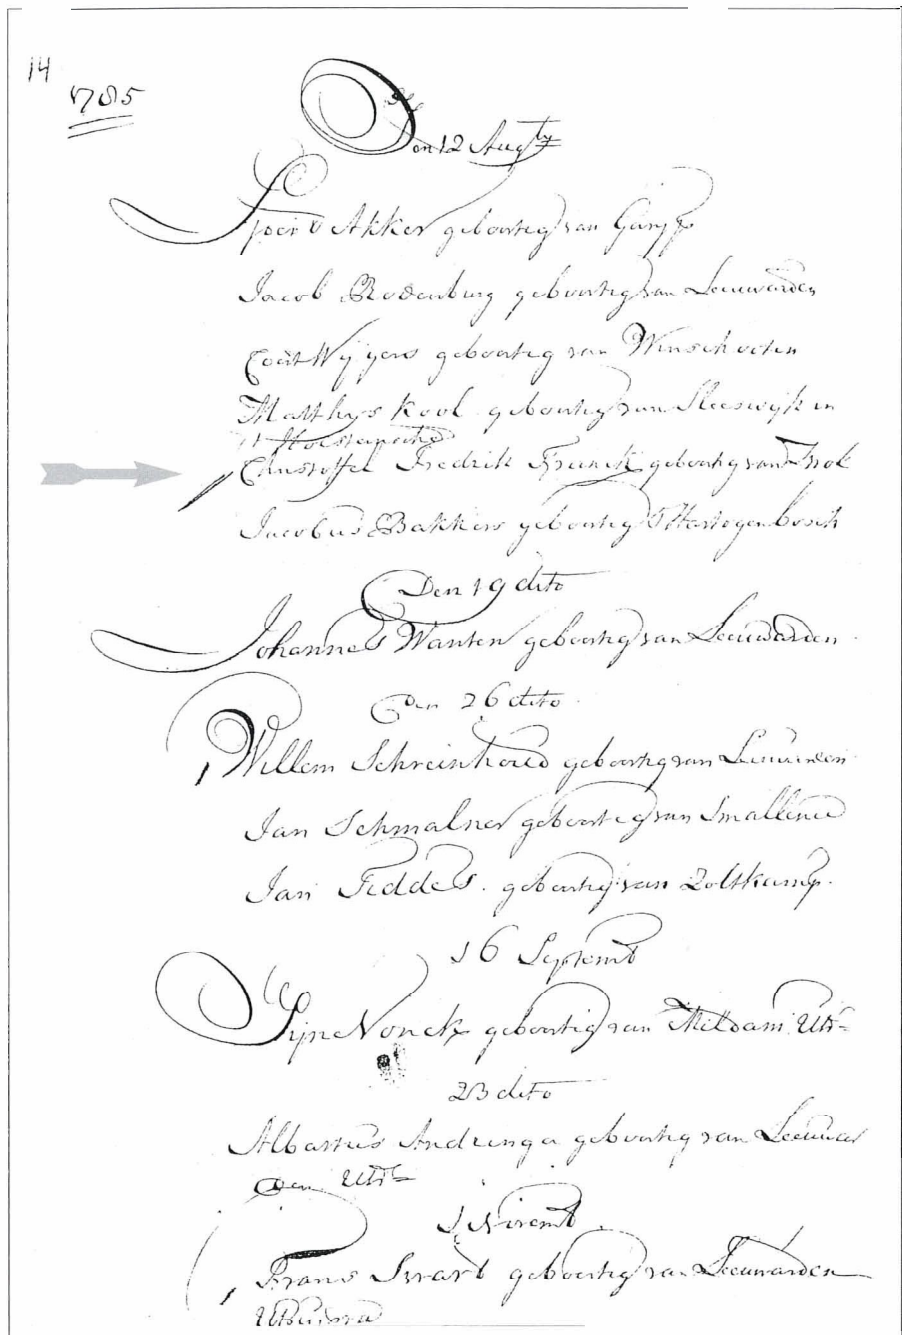 14
1785
Den 12 Aug
Akker geboortig van Garijp
Jacob Rodenburg geboortig van Leeuwarden
Coert Wijgers geboortig van Winschooten
Matthijs Kool geboortig van Sleeswijk in
't
Christoffel Fredrik Franck geboortig van
Jacobus Bakkers geboortig S Hartogenbosch
Den 19 dito
Johannes Wanten geboortig van Leeuwarden
Den 26 dito
Willem geboortig van Leeuwarden
Jan Schmalner geboortig van
Jan Feddes. geboortig van Zoltkamp.
16 Septemb
geboortig van Mildam
23 dito
Albartus Andringa geboortig van Leeuwar
den
1 Novemb
Frans Swart geboortig van Leeuwarden